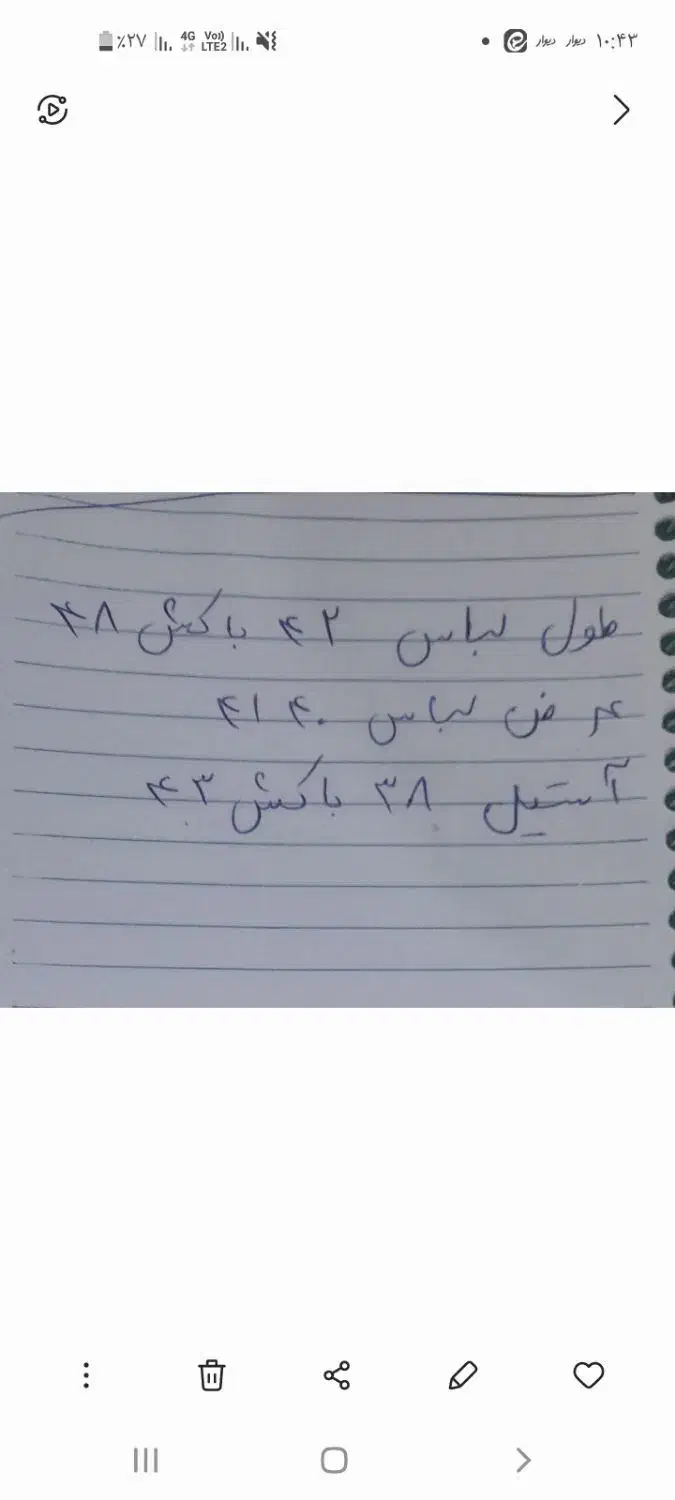 ۱۰:۴۳ دیوار دیوار
4G Vo) LTE2 ٪۲۷
طول لباس ۴۲ با کش ۴۸
عرض لباس ۴۰ ۴۱
آستیل ۳۸ با کش ۴۳